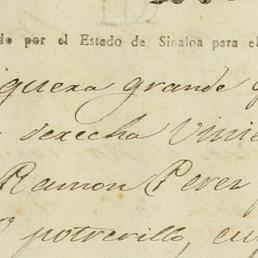 do por el Estado de Sinaloa para el
iguera grande
derecha Vinie
Ramon Perez
potrerillo, cu